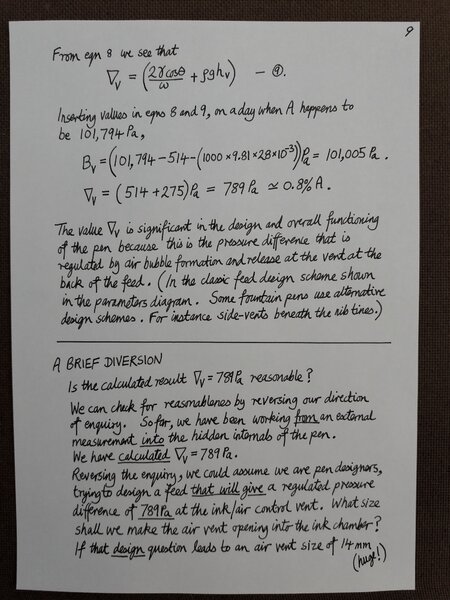 9
From eqn 8 we see that
∇v = (2γcosθ/ω + ρghv) — ⑨.
Inserting values in eqns 8 and 9, on a day when A happens to
be 101,794 Pa,
Bv = (101,794 – 514 – (1000 × 9.81 × 28×10⁻³)) Pa = 101,005 Pa.
∇v = (514 + 275) Pa = 789 Pa ≃ 0.8% A.
The value ∇v is significant in the design and overall functioning
of the pen because this is the pressure difference that is
regulated by air bubble formation and release at the vent at the
back of the feed. (In the classic feed design scheme shown
in the parameters diagram. Some fountain pens use alternative
design schemes. For instance side-vents beneath the nib tines.)
A BRIEF DIVERSION
Is the calculated result ∇v = 789 Pa reasonable?
We can check for reasonableness by reversing our direction
of enquiry. So far, we have been working from an external
measurement into the hidden internals of the pen.
We have calculated ∇v = 789 Pa.
Reversing the enquiry, we could assume we are pen designers,
trying to design a feed that will give a regulated pressure
difference of 789 Pa at the ink/air control vent. What size
shall we make the air vent opening into the ink chamber?
If that design question leads to an air vent size of 14 mm
(huge!)